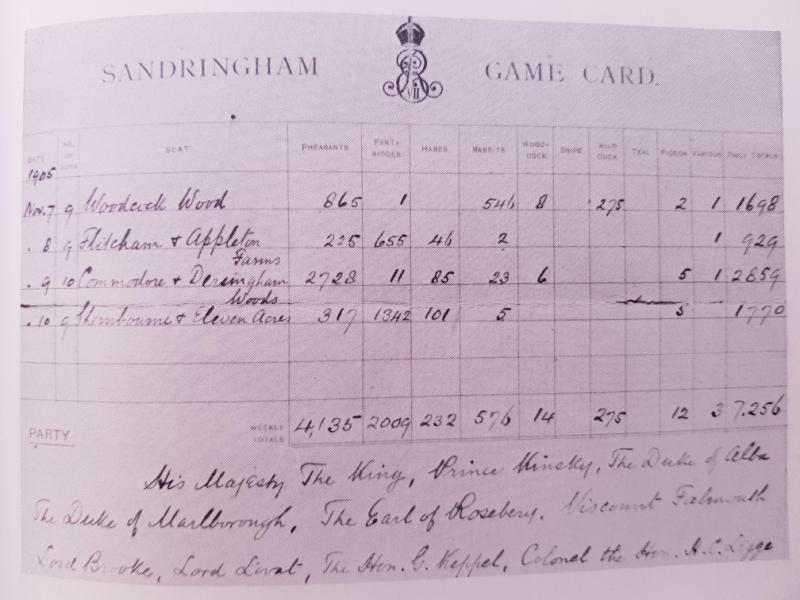 SANDRINGHAM GAME CARD.
VII
DATE NO. OF GUNS SEAT PHEASANTS PART-RIDGES HARES RABBITS WOOD-COCK SNIPE WILD DUCK TEAL PIGEON VARIOUS DAILY TOTALS
1905
Nov. 7 9 Woodcock Wood 865 1 546 8 275 2 1 1698
. 8 9 Flitcham & Appleton 225 655 46 2 1 929
Farms
. 9 10 Commodore & Dersingham 2728 11 85 23 6 5 1 2859
Woods
. 10 9 Shernbourne & Eleven Acres 317 1342 101 5 5 1770
WEEKLY TOTALS 4,135 2009 232 576 14 275 12 3 7.256
PARTY
His Majesty The King, Prince Kinsky, The Duke of Alba
The Duke of Marlborough, The Earl of Rosebery. Viscount Falmouth
Lord Brooke, Lord Lovat, The Hon. G. Keppel, Colonel the Hon. H.C. Legge